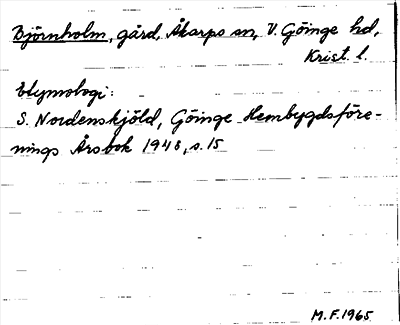 Björnholm, gård, Åkarps sn, V. Göinge hd,
Krist. l.
Etymologi:
S. Nordenskjöld, Göinge Hembygdsföre-
nings Årsbok 1948, s. 15
M.F. 1965